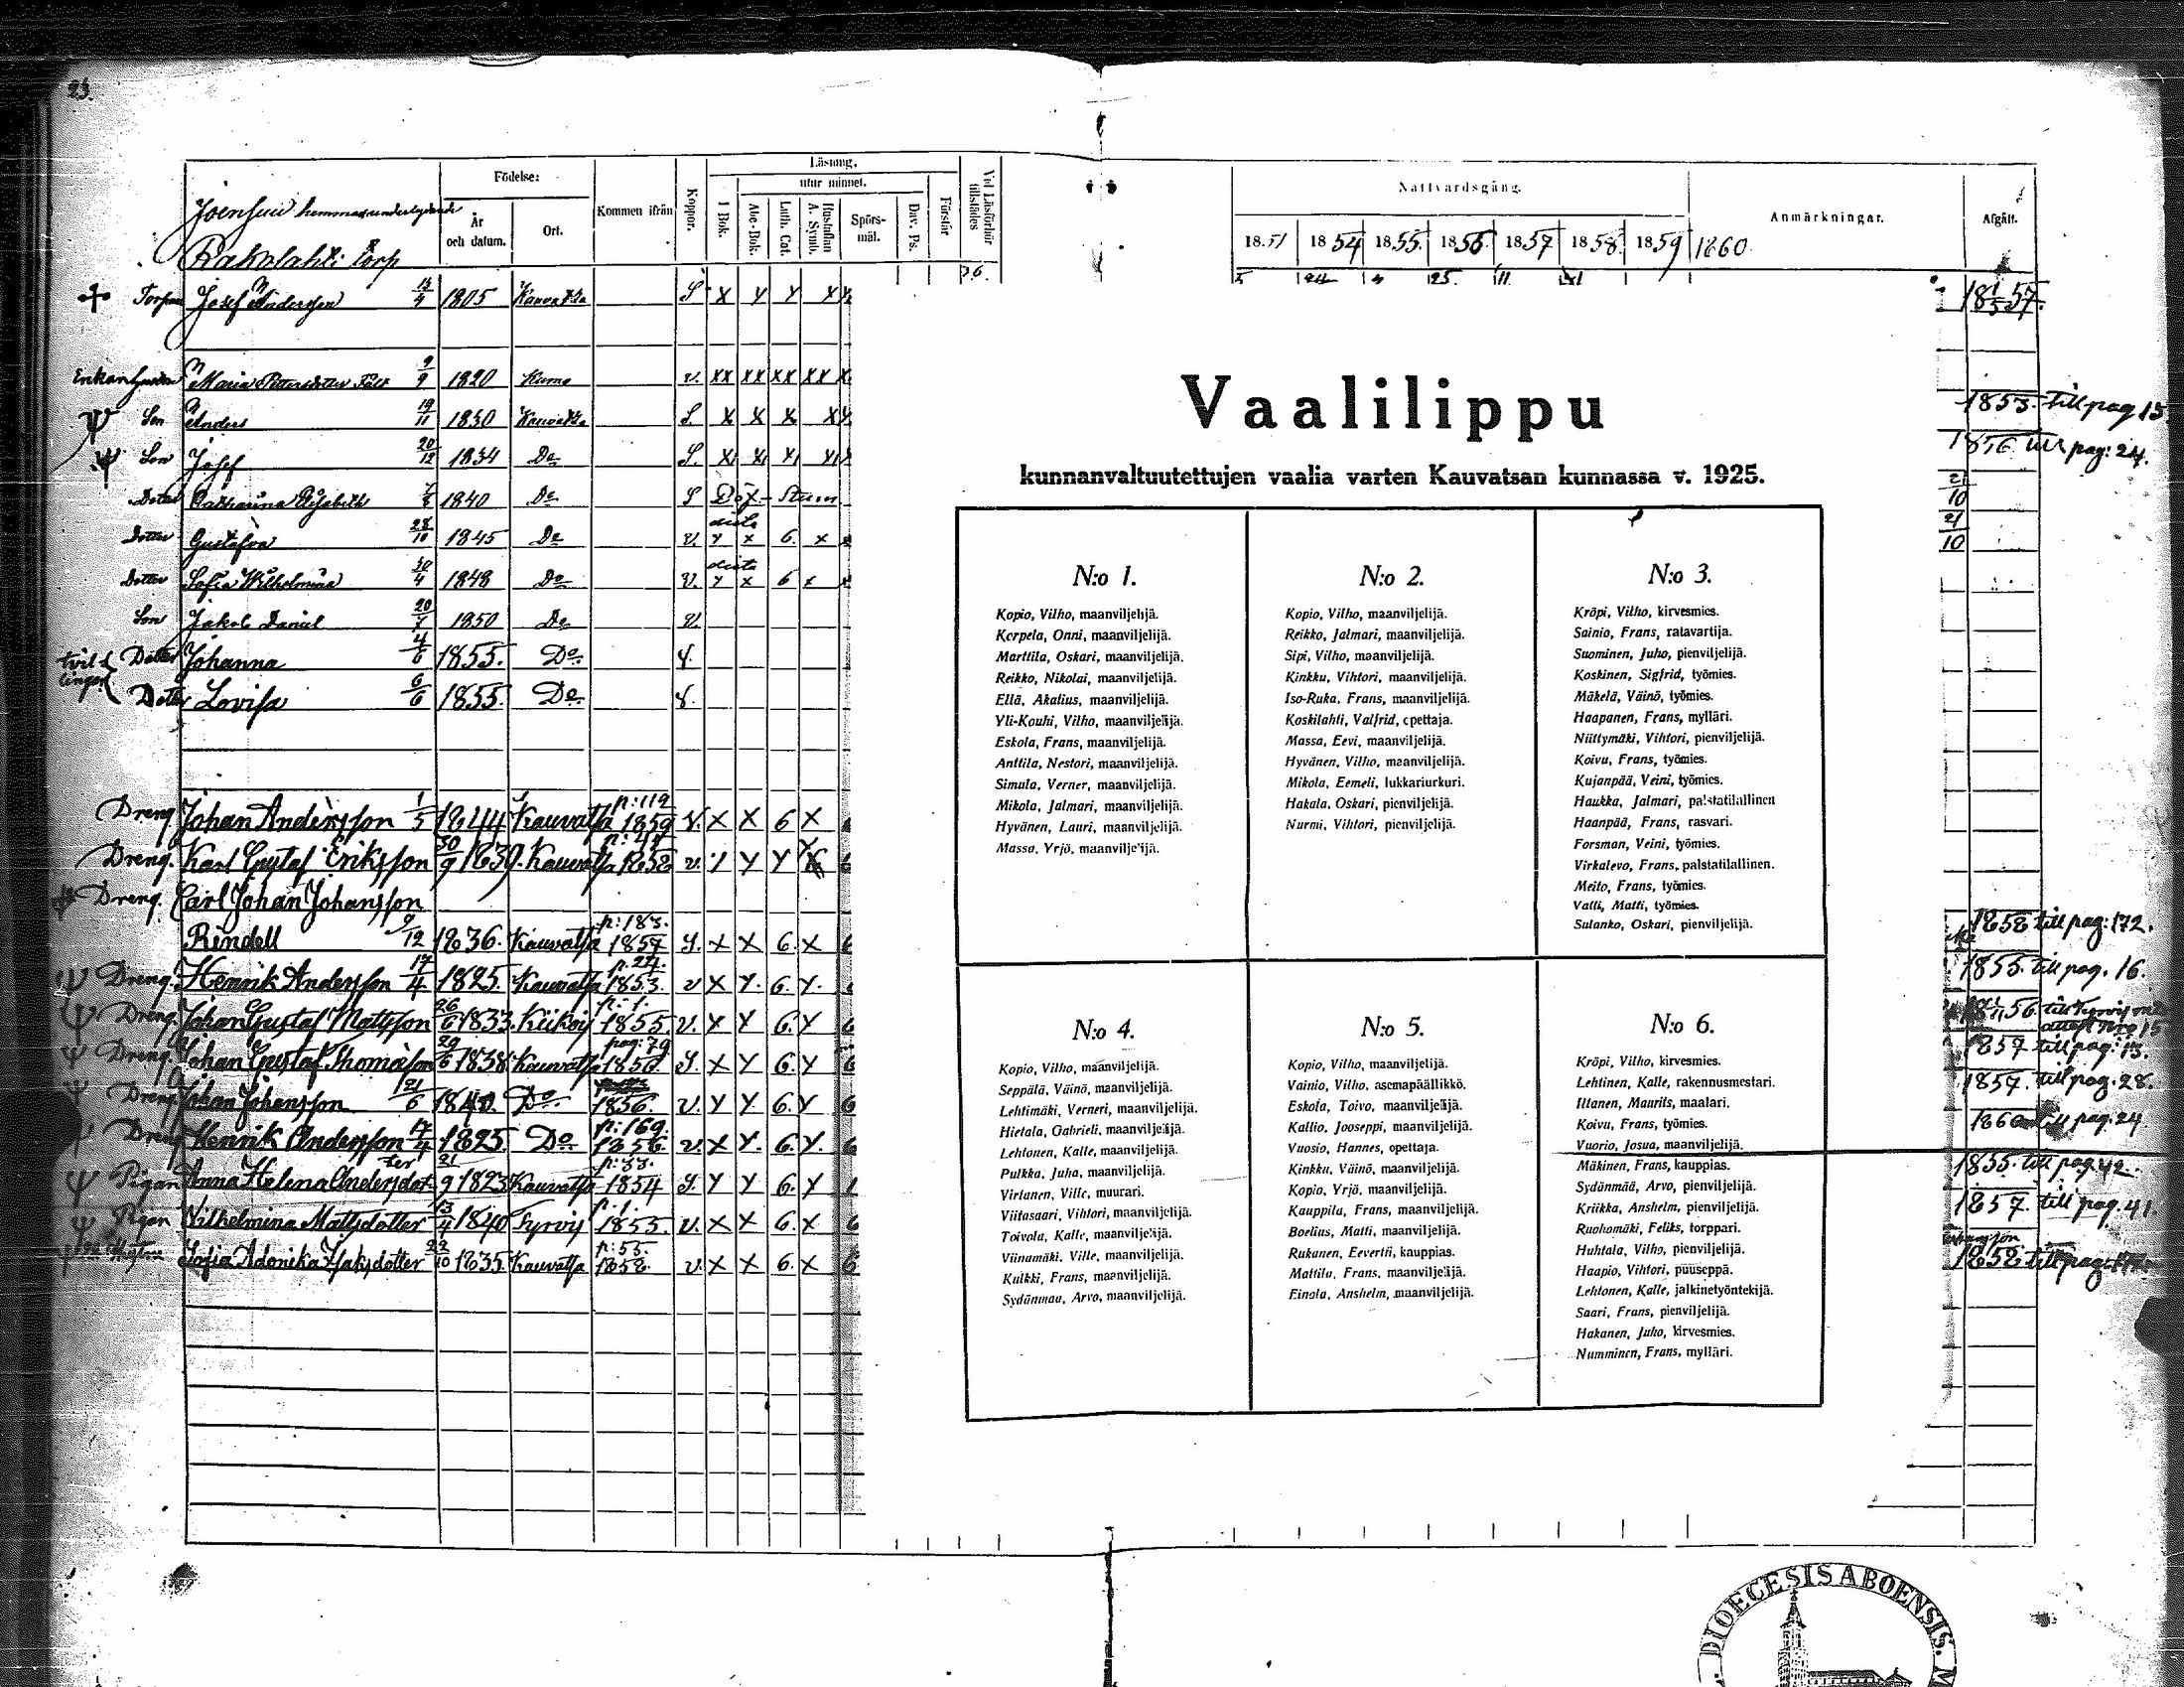 23.
Joensuu hemman underlydande
Raholahti torp
Födelse:
År och datum.
Ort.
Kommen ifrån
Koppor.
Läsning.
utur minnet.
I Bok.
Abc-Bok.
Luth. Cat.
Hustaflan A. Symb.
Spörs-mål.
Dav. Ps.
Förstår
Vid Läsförhör tillstädes
Nattvardsgång.
1854 1855. 1856 1857 1858 1859 1860.
Anmärkningar.
Afgått.
Josef Andersson 1805 Kauvatsa S X
Maria 1820 Kumo v. XX XX XX XX
Son Anders 19/11 1830 Kauvatsa S. X X X
1853. till pag 15
Son Josef 20/12 1834 Do S.
pag: 24.
Catharina Elisabeth 1840 Do S Döf-Stum
21/10
Dotter Gustafva 28/10 1845 Do v. x 6. x
21/10
Dotter Sofia Wilhelmina 30/4 1848 Do v. x 6 x
Son Jakob Daniel 1850 Do v
tvil-lingar
Dotter Johanna 4/6 1855. Do
Dotter Lovisa 6/6 1855. Do
Dreng Johan Andersson 1/5 1844 Kauvatsa p: 112 1859 v. X X 6 X
Dreng. Karl Gustaf Eriksson 30/9 1839. Kauvatsa 1858 v.
Dreng. Carl Johan Johansson
Rindell 9/12 1836. Kauvatsa p: 183. 1857 X X 6. X
1858 till pag: 172.
Dreng. Henrik Andersson 17/4 1825. Kauvatsa p. 24. 1853. v X Y. 6. Y.
1855. till pag. 16.
Dreng. Johan Gustaf Mattsson 26/6 1833. Kiikois p: 1. 1855. v. X Y. 6. Y
Dreng. Johan Gustaf Thomasson 29/6 1838 Kauvatsa pag: 79 X Y. 6. Y
1857 till pag: 13.
Dreng Johan Johansson 21/6 Do 1856. v. Y Y. 6. Y
1857. till pag. 28.
Dreng Henrik Andersson 17/4 1825. Do p: 169. 1856. v. X Y. 6. Y.
1860 till pag. 24
Pigan Anna Helena Andersdotter 21/9 1823 Kauvatsa p: 33. 1854 Y Y 6. Y
1855. till pag. 42.
Pigan Wilhelmina Mattsdotter 13/4 1840 Tyrvis p. 1. 1855. v. X X 6. X
1857. till pag. 41.
Sofia Adonika Isaksdotter 22/10 1835. Kauvatsa p: 55. 1858. v. X X 6. X
1858 till pag:
Vaalilippu
kunnanvaltuutettujen vaalia varten Kauvatsan kunnassa v. 1925.
N:o 1.
Kopio, Vilho, maanviljelijä.
Korpela, Onni, maanviljelijä.
Marttila, Oskari, maanviljelijä.
Reikko, Nikolai, maanviljelijä.
Ellä, Akalius, maanviljelijä.
Yli-Kouhi, Vilho, maanviljelijä.
Eskola, Frans, maanviljelijä.
Anttila, Nestori, maanviljelijä.
Simula, Verner, maanviljelijä.
Mikola, Jalmari, maanviljelijä.
Hyvänen, Lauri, maanviljelijä.
Massa, Yrjö, maanviljelijä.
N:o 2.
Kopio, Vilho, maanviljelijä.
Reikko, Jalmari, maanviljelijä.
Sipi, Vilho, maanviljelijä.
Kinkku, Vihtori, maanviljelijä.
Iso-Ruka, Frans, maanviljelijä.
Koskilahti, Valfrid, opettaja.
Massa, Eevi, maanviljelijä.
Hyvänen, Vilho, maanviljelijä.
Mikola, Eemeli, lukkariurkuri.
Hakala, Oskari, pienviljelijä.
Nurmi, Vihtori, pienviljelijä.
N:o 3.
Kröpi, Vilho, kirvesmies.
Sainio, Frans, ratavartija.
Suominen, Juho, pienviljelijä.
Koskinen, Sigfrid, työmies.
Mäkelä, Väinö, työmies.
Haapanen, Frans, mylläri.
Niittymäki, Vihtori, pienviljelijä.
Koivu, Frans, työmies.
Kujanpää, Veini, työmies.
Haukka, Jalmari, palstatilallinen
Haanpää, Frans, rasvari.
Forsman, Veini, työmies.
Virkalevo, Frans, palstatilallinen.
Meito, Frans, työmies.
Valli, Matti, työmies.
Sulanko, Oskari, pienviljelijä.
N:o 4.
Kopio, Vilho, maanviljelijä.
Seppälä, Väinö, maanviljelijä.
Lehtimäki, Verneri, maanviljelijä.
Hietala, Gabrieli, maanviljelijä.
Lehtonen, Kalle, maanviljelijä.
Pulkka, Juha, maanviljelijä.
Virtanen, Ville, muurari.
Viitasaari, Vihtori, maanviljelijä.
Toivola, Kalle, maanviljelijä.
Viinamäki, Ville, maanviljelijä.
Kulkki, Frans, maanviljelijä.
Sydänmaa, Arvo, maanviljelijä.
N:o 5.
Kopio, Vilho, maanviljelijä.
Vainio, Vilho, asemapäällikkö.
Eskola, Toivo, maanviljelijä.
Kallio, Jooseppi, maanviljelijä.
Vuosio, Hannes, opettaja.
Kinkku, Väinö, maanviljelijä.
Kopio, Yrjö, maanviljelijä.
Kauppila, Frans, maanviljelijä.
Boelius, Matti, maanviljelijä.
Rukanen, Eevertti, kauppias.
Mattila, Frans, maanviljelijä.
Einola, Anshelm, maanviljelijä.
N:o 6.
Kröpi, Vilho, kirvesmies.
Lehtinen, Kalle, rakennusmestari.
Iltanen, Maurits, maalari.
Koivu, Frans, työmies.
Vuorio, Josua, maanviljelijä.
Mäkinen, Frans, kauppias.
Sydänmää, Arvo, pienviljelijä.
Kriikka, Anshelm, pienviljelijä.
Ruohomäki, Feliks, torppari.
Huhtala, Vilho, pienviljelijä.
Haapio, Vihtori, puuseppä.
Lehtonen, Kalle, jalkinetyöntekijä.
Saari, Frans, pienviljelijä.
Hakanen, Juho, kirvesmies.
Numminen, Frans, mylläri.
DIOECESIS ABOENSIS.